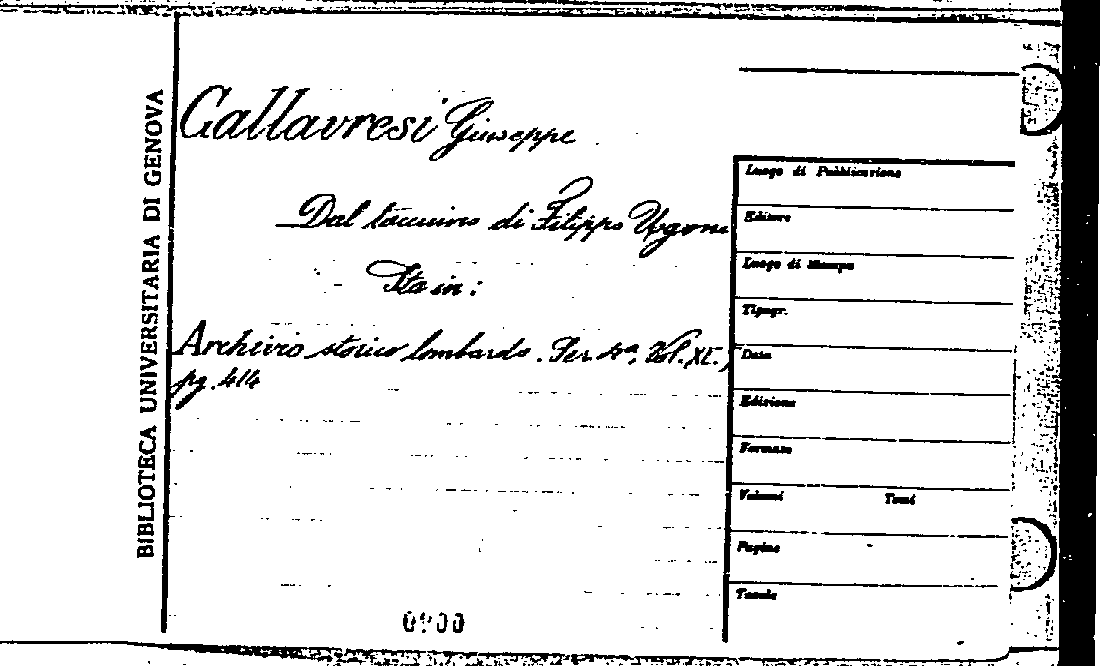 BIBLIOTECA UNIVERSITARIA DI GENOVA
Gallavresi Giuseppe
Dal taccuino di Filippo Ugoni
Sta in:
Archivio storico lombardo. Ser. 4ª, Vol. XI.,
pg. 414
Luogo di Pubblicazione
Editore
Luogo di Stampa
Tipogr.
Data
Edizione
Formato
Volumi Tomi
Pagine
Tavole